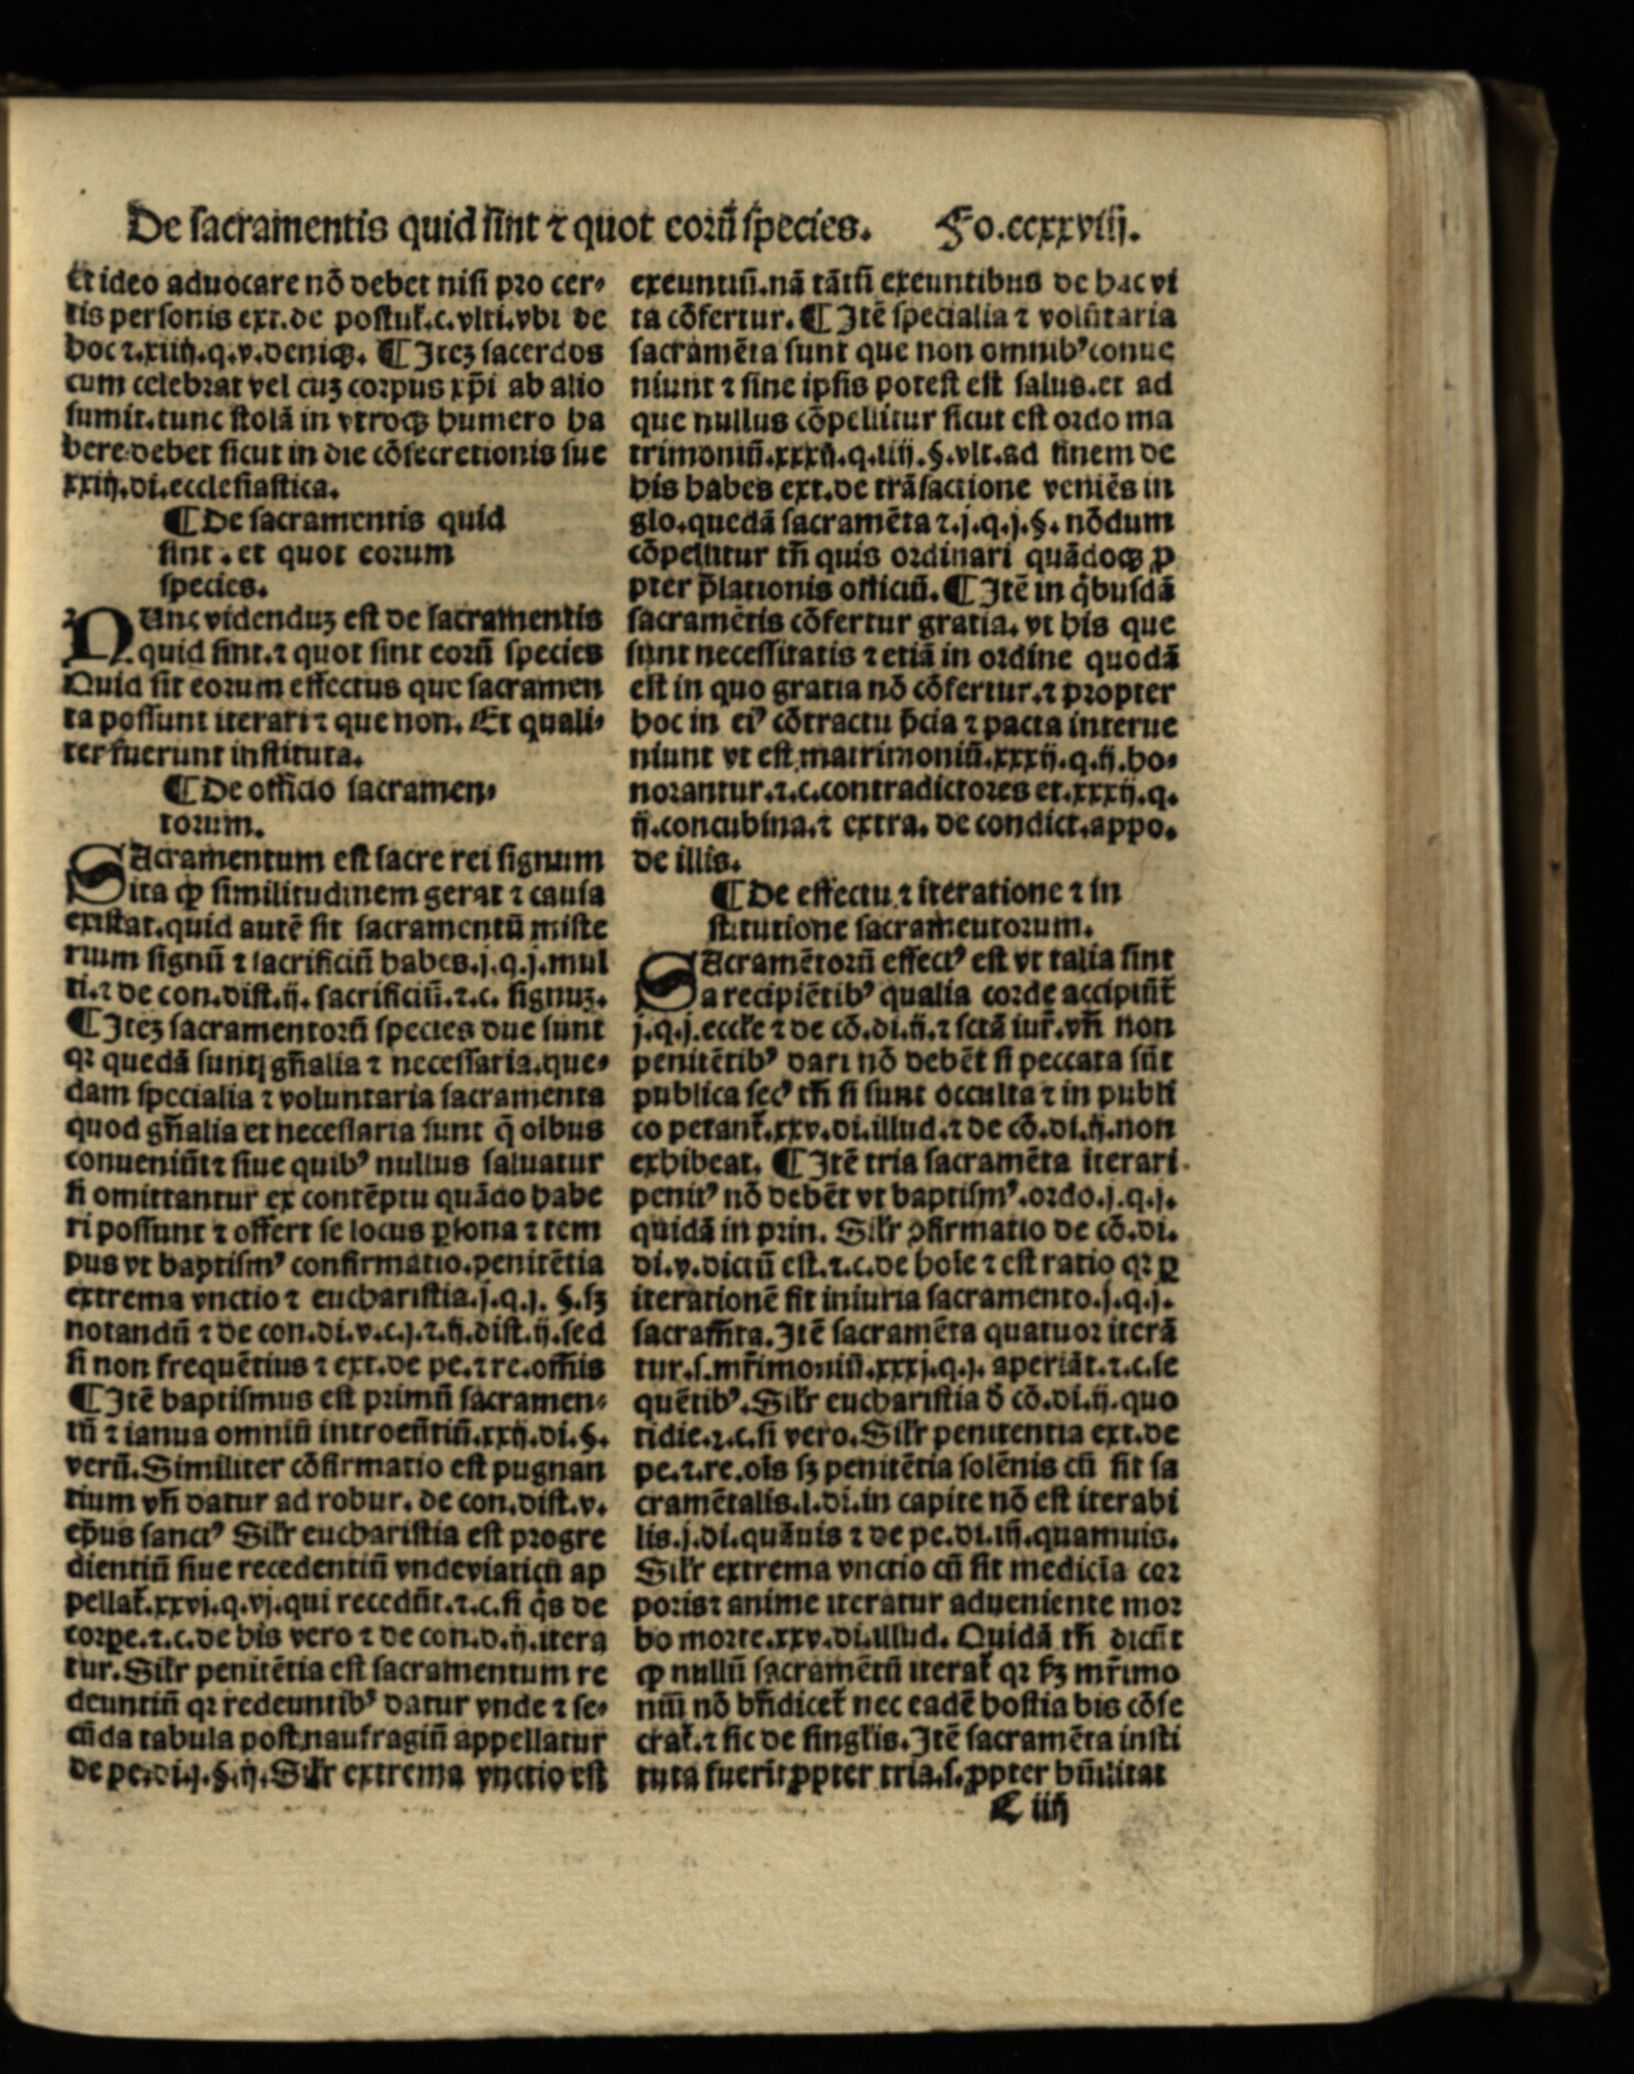 De sacramentis quid sint ⁊ quot eorū species. Fo.ccxxviij.
Et ideo aduocare nō debet nisi pro cer⸗
tis personis ext.de postul̃.c.vlti.vbi de
hoc ⁊.xiiij.q.v.deniqꝫ. ¶ Iteꝫ sacerdos
cum celebrat vel cuꝫ corpus xp̄i ab alio
sumit.tunc stolā in vtroqꝫ humero ha
bere debet sicut in die cōsecretionis sue
xxiij.di.ecclesiastica.
¶ De sacramentis quid
sint . et quot eorum
species.
NUnc videnduꝫ est de sacramentis
quid sint.⁊ quot sint eorū species
Quid sit eorum effectus que sacramen
ta possunt iterari ⁊ que non. Et quali⸗
ter fuerunt instituta.
¶ De officio sacramen⸗
torum.
SAcramentum est sacre rei signum
ita ꝙ similitudinem gerat ⁊ causa
existat.quid autē sit sacramentū miste
rium signū ⁊ sacrificiū habes.j.q.j.mul
ti.⁊ de con.dist.ij. sacrificiū.⁊.c. signuꝫ.
¶ Iteꝫ sacramentorū species due sunt
qꝛ quedā sunt gn̄alia ⁊ necessaria.que⸗
dam specialia ⁊ voluntaria sacramenta
quod gn̄alia et necessaria sunt q̄ oībus
conueniūt ⁊ siue quibꝰ nullus saluatur
si omittantur ex contēptu quādo habe
ri possunt ⁊ offert se locus ꝑsona ⁊ tem
pus vt baptismꝰ confirmatio.penitētia
extrema vnctio ⁊ eucharistia.j.q.j. §.sꝫ
notandū ⁊ de con.di.v.c.j.⁊.ij.dist.ij.sed
si non frequētius ⁊ ext.de pe.⁊ re.om̄is
¶ Itē baptismus est primū sacramen⸗
tū ⁊ ianua omniū introeūtiū.xxij.di.§.
verū.Similiter cōfirmatio est pugnan
tium vn̄ datur ad robur. de con.dist.v.
ep̄us sanctꝰ Sil̃r eucharistia est progre
dientiū siue recedentiū vndeviaticū ap
pellat̃.xxvj.q.vj.qui recedūt.⁊.c.si q̄s de
corꝑe.⁊.c.de his vero ⁊ de con.d.ij.itera
tur.Sil̃r penitētia est sacramentum re
deuntiū qꝛ redeuntibꝰ datur vnde ⁊ se⸗
cūda tabula post naufragiū appellatur
de pe.di.j.§.ij.Sil̃r extrema vnctio est
exeuntiū.nā tātū exeuntibus de hac vi
ta cōfertur. ¶ Itē specialia ⁊ volūtaria
sacramēta sunt que non omnibꝰ conue
niunt ⁊ sine ipsis potest est salus.et ad
que nullus cōpellitur sicut est ordo ma
trimoniū.xxxij.q.iiij.§.vlt.ad finem de
his habes ext.de trāsactione veniēs in
glo.quedā sacramēta ⁊.j.q.j.§. nōdum
cōpellitur tn̄ quis ordinari quādoqꝫ ꝓ
pter p̄lationis officiū. ¶ Itē in q̇busdā
sacramētis cōfertur gratia. vt his que
sunt necessitatis ⁊ etiā in ordine quodā
est in quo gratia nō cōfertur.⁊ propter
hoc in eiꝰ cōtractu p̄cia ⁊ pacta interue
niunt vt est matrimoniū.xxxij.q.ij.ho⸗
norantur.⁊.c.contradictores et.xxxij.q.
ij.concubina.⁊ extra. de condict.appo.
de illis.
¶ De effectu ⁊ iteratione ⁊ in
stitutione sacrameutorum.
SAcramētorū effectꝰ est vt talia sint
a recipiētibꝰ qualia corde accipiūt
j.q.j.eccl̃e ⁊ de cō.di.ij.⁊ sctā iur̃.vn̄ non
penitētibꝰ dari nō debēt si peccata sūt
publica secꝰ tn̄ si sunt occulta ⁊ in publi
co petant̃.xxv.di.illud.⁊ de cō.di.ij.non
exhibeat. ¶ Itē tria sacramēta iterari
penitꝰ nō debēt vt baptismꝰ.ordo.j.q.j.
quidā in prin. Sil̃r ꝯfirmatio de cō.di.
di.v.dictū est.⁊.c.de hoīe ⁊ est ratio qꝛ ꝑ
iterationē fit iniuria sacramento.j.q.j.
sacram̄ta.Itē sacramēta quatuor iterā
tur.s.mr̄imoniū.xxxj.q.j. aperiāt.⁊.c.se
quētibꝰ.Sil̃r eucharistia d̄ cō.di.ij.quo
tidie.⁊.c.si vero.Sil̃r penitentia ext.de
pe.⁊.re.oīs sꝫ penitētia solēnis cū sit sa
cramētalis.l.di.in capite nō est iterabi
lis.j.di.quāuis ⁊ de pe.di.iij.quamuis.
Sil̃r extrema vnctio cū sit medicīa cor
poris ⁊ anime iteratur adueniente mor
bo morte.xxv.di.illud. Quidā tn̄ dicūt
ꝙ nullū sacramētū iterat̃ qꝛ sꝫ mr̄imo
niū nō bn̄dicet̃ nec eadē hostia bis cōse
crat̃.⁊ sic de singl̃is.Itē sacramēta insti
tuta fuerīt ꝓpter tria.s.ꝓpter hūilitat
C iiij